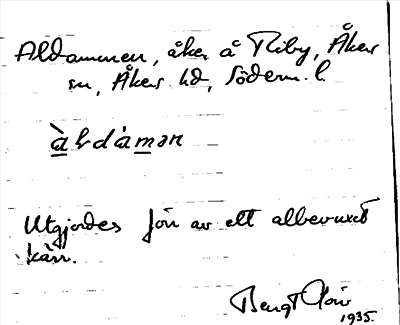 Aldammen, åker å Riby, Åkers
sn, Åkers hd, Söderm. l.
àldáman
Utgjordes förr av ett albevuxet
kärr.
Bengt
1935.